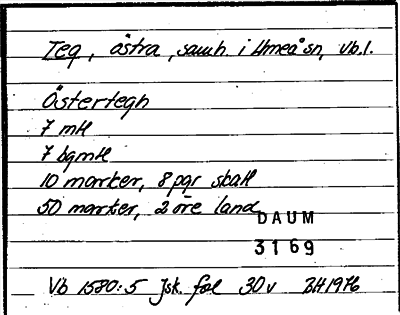 Teg, östra, samh. i Umeå sn, Vb.l.
Östertegh
7 mtl
7 bgmtl
10 marker, 8 pgr skatt
50 marker, 2 öre land
DAUM
3169
Vb 1580:5 Jsk. fol 30v BH 1976